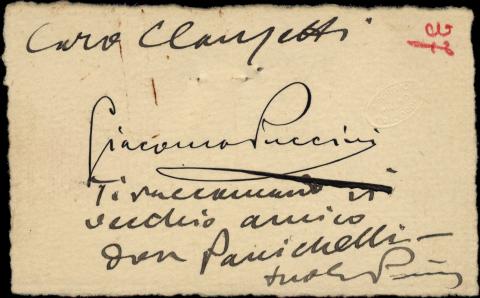 Caro Clausetti
Giacomo Puccini
Ti raccomando il
vecchio amico
Don Panichelli —
tuo